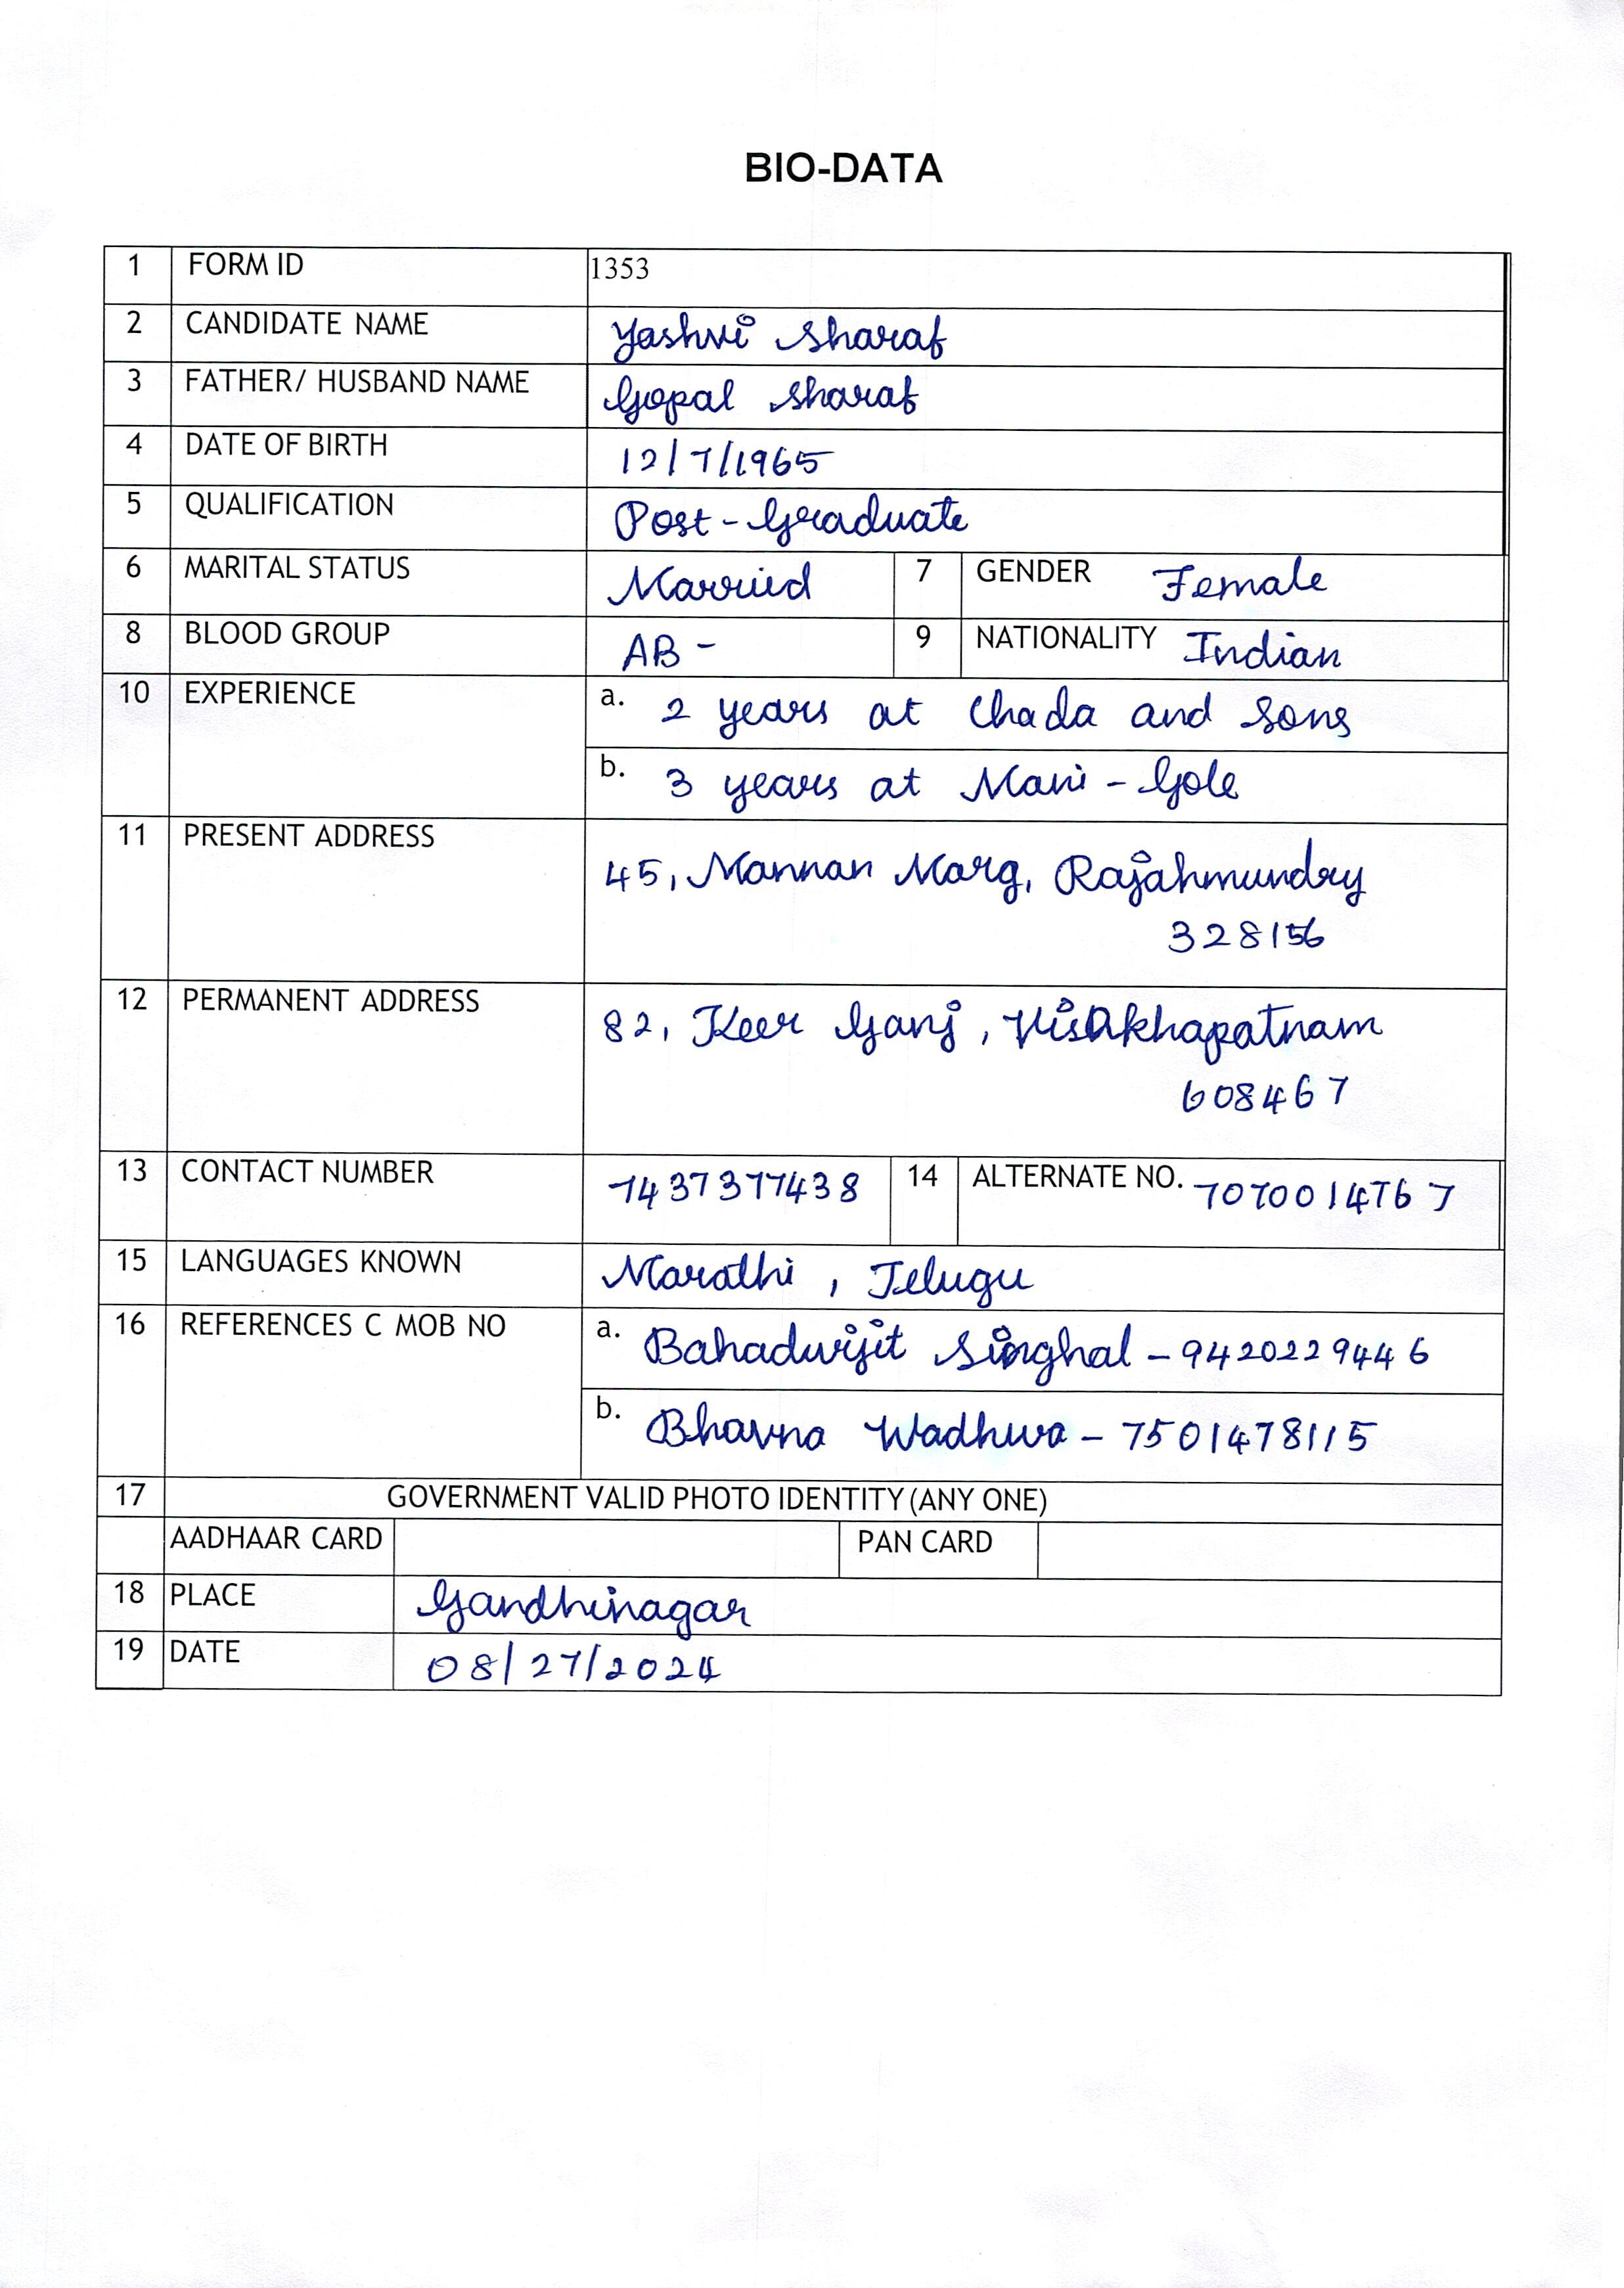 BIO-DATA
1 FORM ID 1353
2 CANDIDATE NAME Yashvi Sharaf
3 FATHER/ HUSBAND NAME Gopal Sharaf
4 DATE OF BIRTH 12/7/1965
5 QUALIFICATION Post-Graduate
6 MARITAL STATUS Married 7 GENDER Female
8 BLOOD GROUP AB- 9 NATIONALITY Indian
10 EXPERIENCE a. 2 years at Chada and Sons
b. 3 years at Mani-Gole
11 PRESENT ADDRESS
45, Mannan Marg, Rajahmundry
328156
12 PERMANENT ADDRESS
82, Keer Ganj, Visakhapatnam
608467
13 CONTACT NUMBER 7437377438 14 ALTERNATE NO. 7070014767
15 LANGUAGES KNOWN Marathi, Telugu
16 REFERENCES C MOB NO a. Bahadurjit Singhal - 9420229446
b. Bhavna Wadhwa - 7501478115
17 GOVERNMENT VALID PHOTO IDENTITY (ANY ONE)
AADHAAR CARD PAN CARD
18 PLACE Gandhinagar
19 DATE 08/27/2024